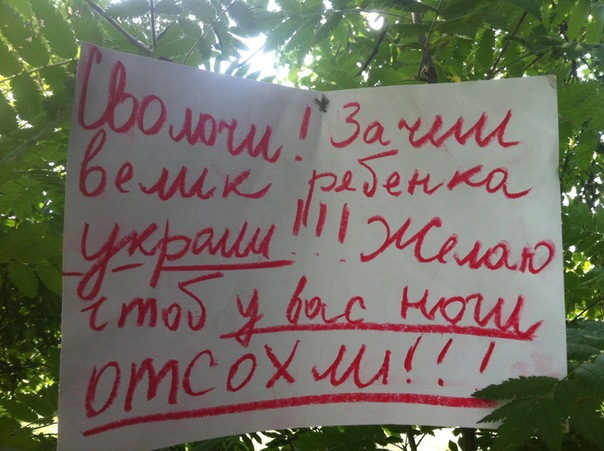 Сволочи! Зачем
велик ребенка
украли!!! Желаю
чтоб у вас ноги
отсохли!!!